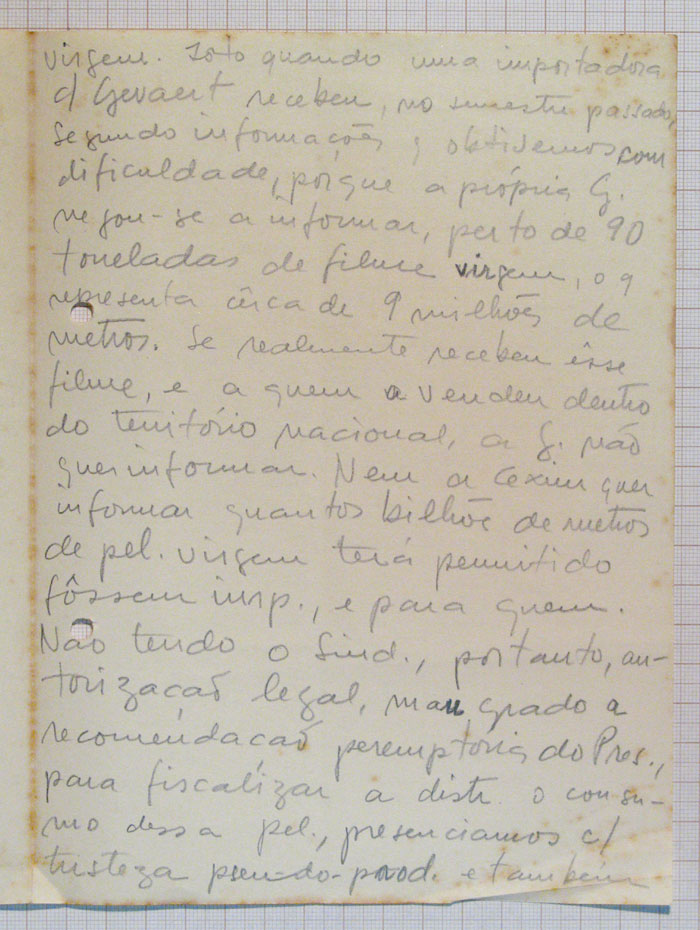 virgem. Isto quando uma importadora
c/ Gevaert recebeu, no semestre passado,
segundo informações q obtivemos com
dificuldade, porque a própria G.
negou-se a informar, perto de 90
toneladas de filme virgem, o q
representa cêrca de 9 milhões de
metros. Se realmente recebeu êsse
filme, e a quem o vendeu dentro
do território nacional, a G. não
quer informar. Nem a Cexim quer
informar quantos bilhões de metros
de pel. virgem terá permitido
fôssem imp., e para quem.
Não tendo o Sind., portanto, au-
torização legal, mau grado a
recomendação peremptória do Pres.,
para fiscalizar a distr. o consu-
mo dessa pel., presenciamos c/
tristeza pseudo-prod. e também